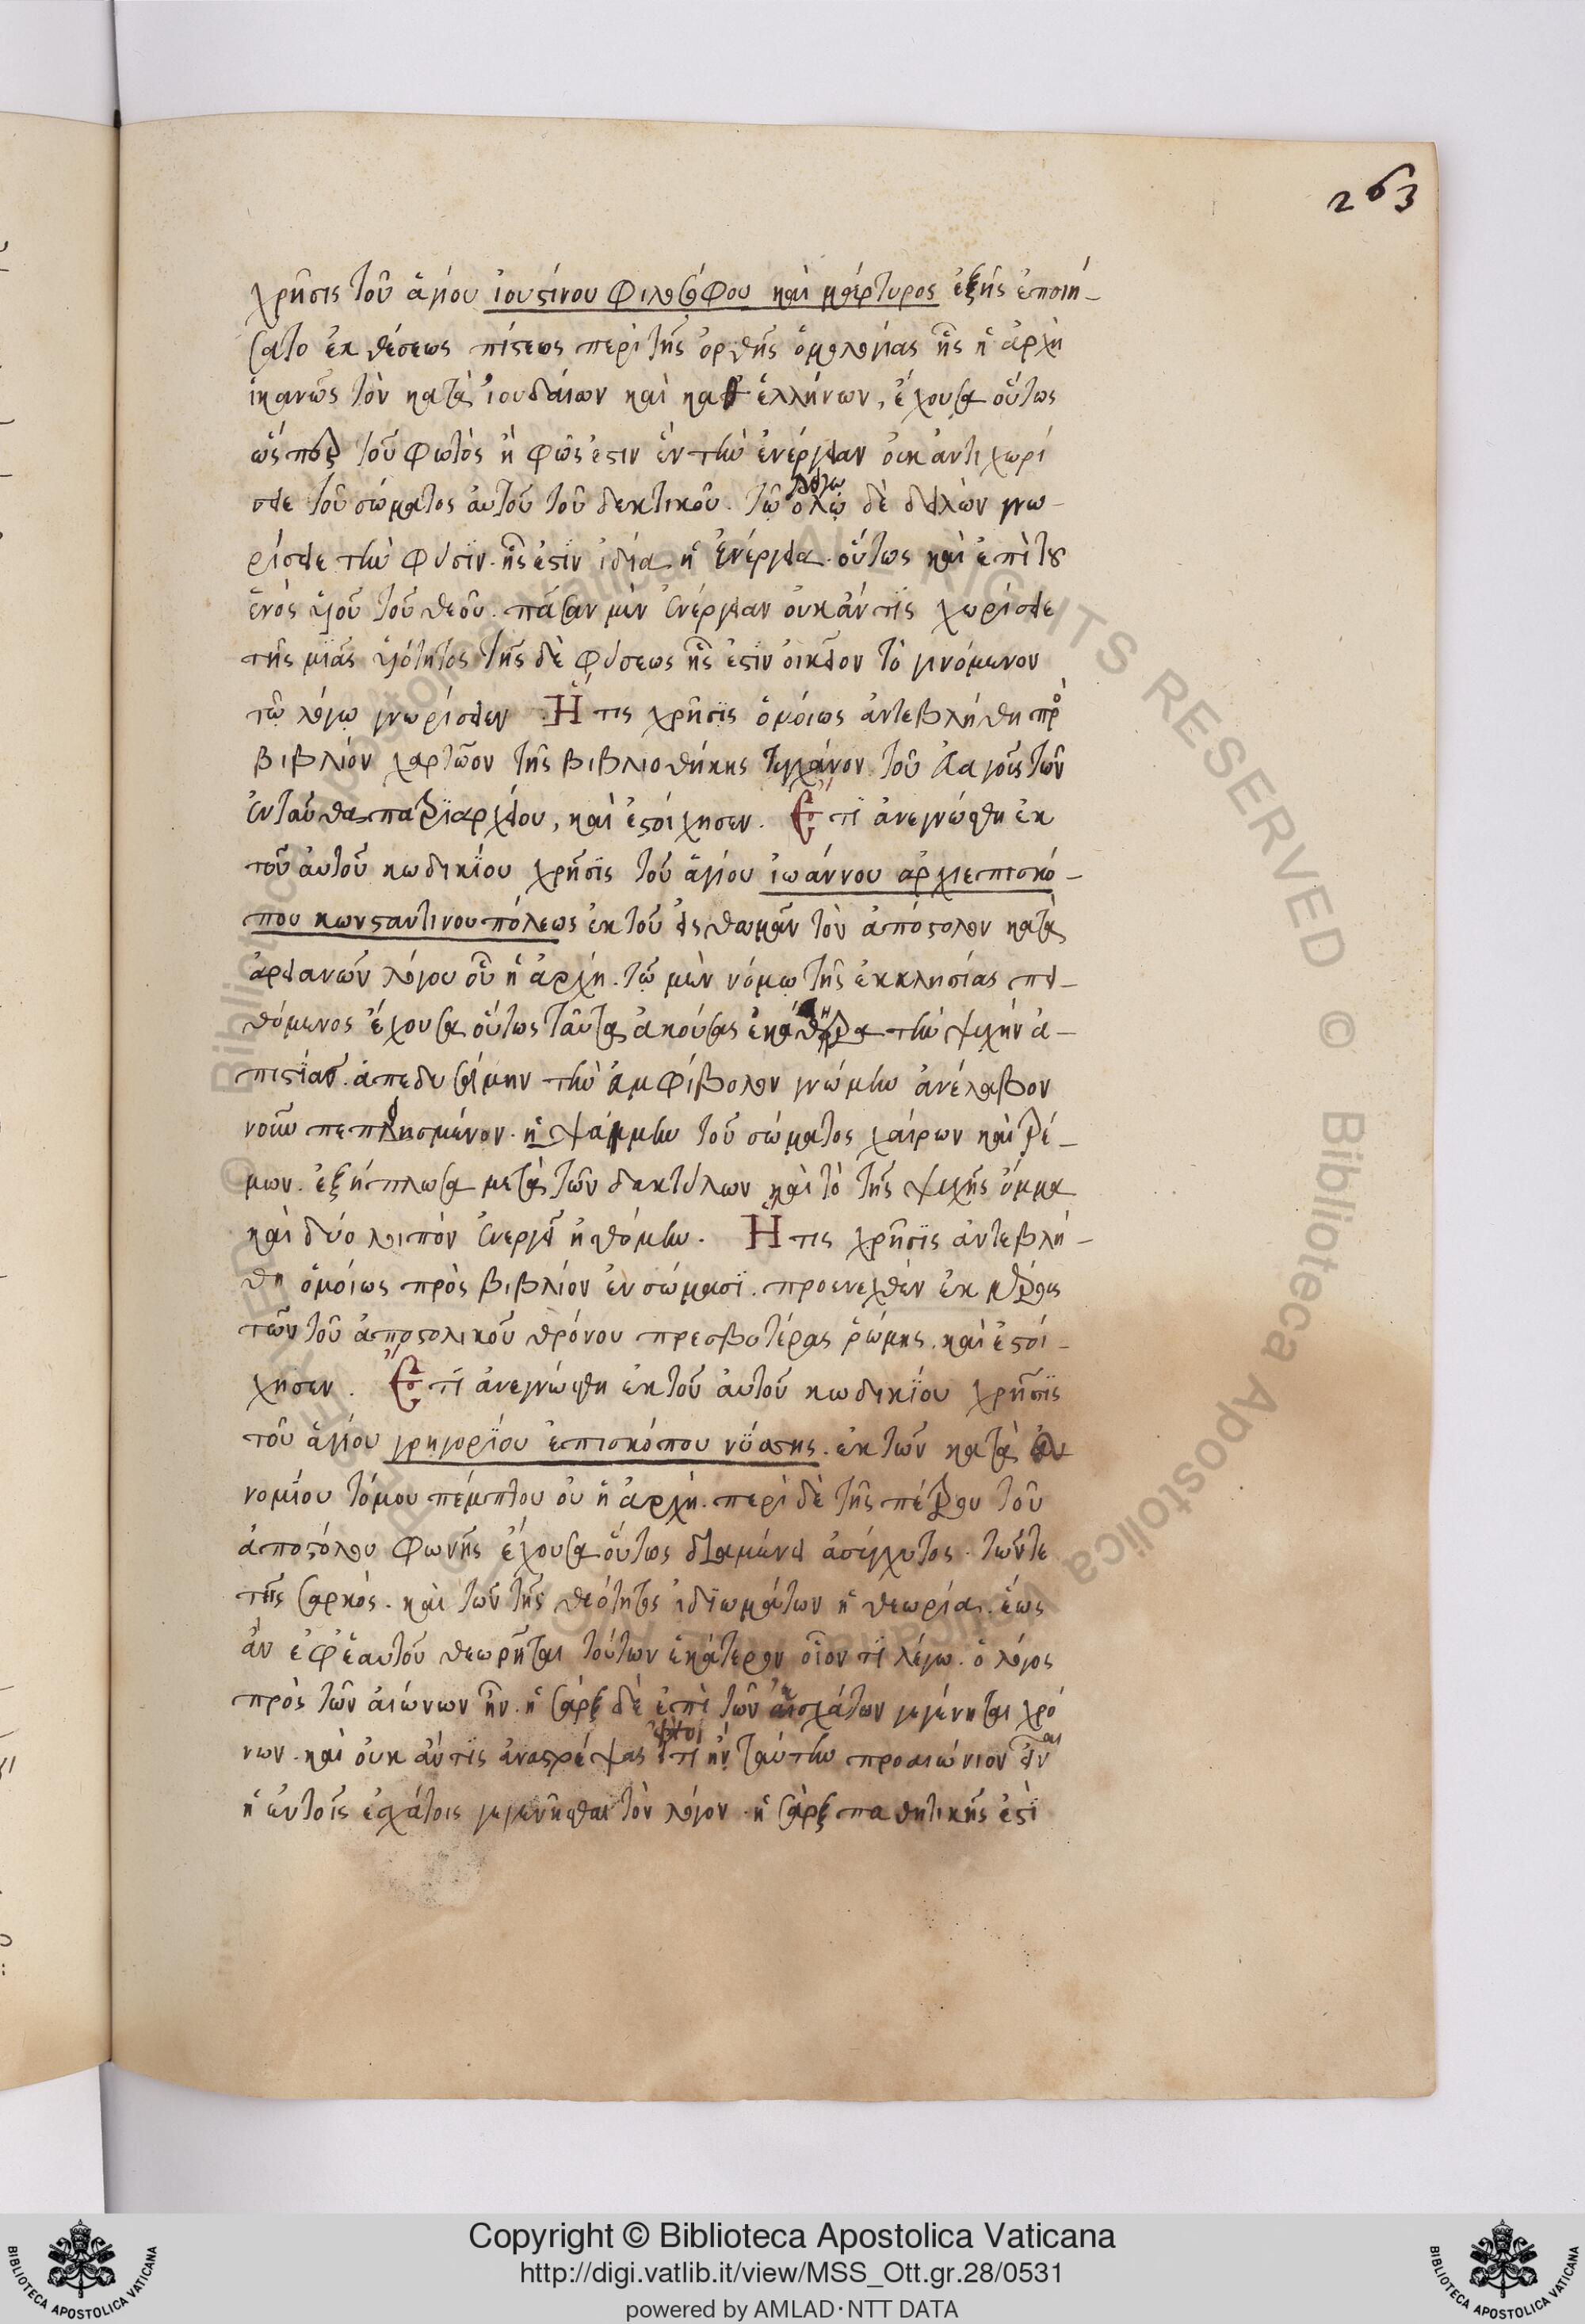 263
χρῆσις τοῦ ἁγίου ἰουστίνου φιλοσόφου καὶ μάρτυρος ἐξῆς ἐποιή-
σατο ἐκ θέσεως πίστεως περὶ τῆς ὀρθῆς ὁμολογίας ἧς ἡ ἀρχὴ
ἱκανῶς τὸν κατὰ ἰουδαίων καὶ κατ ἑλλήνων, ἔχουσα οὕτως
ὥσπερ τοῦ φωτὸς ἢ φῶς ἐστιν ἓν τὴν ἐνέργειαν οὐκ ἄν τι χωρί
σειε τοῦ σώματος αὐτοῦ τοῦ δεκτικοῦ. τῷ ὅλῳ λόγω δὲ διελὼν γνω-
ρίσειε τὴν φύσιν. ἧς ἐστὶν ἰδία ἡ ἐνέργεια. οὕτως καὶ ἐπὶ τοῦ
ἑνὸς υἱοῦ τοῦ θεοῦ. πᾶσαν μὲν ἐνέργειαν οὐκ ἄν τῒς χωρίσειε
τῆς μϊᾶς υἱότητος τῆς δὲ φύσεως ἧς ἐστὶν οἰκεῖον τὸ γινόμενον
τῷ λόγῳ γνωρίσειεν. Ἥ τις χρῆσϊς ὁμοίως ἀντεβλήθη πρὸ
βιβλίον χαρτῶον τῆς βιβλιοθήκης τυγχάνον τοῦ εὐαγοῦς τῶν
ἐνταῦθα πατρϊαρχείου, καὶ ἐστοίχησεν. Ἔ τϊ ἀνεγνώσθη ἐκ
τοῦ αὐτοῦ κωδικΐου χρῆσϊς τοῦ ἁγίου ἰωάννου ἀρχιεπισκό-
που κωνσταντινουπόλεως ἐκ τοῦ εἰς θωμᾶν τὸν ἀπόστολον κατὰ
ἀρειανῶν λόγου οὗ ἡ ἀρχή. τῷ μὲν νόμῳ τῆς ἐκκλησίας πει-
θόμενος ἔχουσα οὕτως ταῦτα ἀκούσας ἐκάθηρα τὴν ψυχὴν ἀ-
πιστΐας. ἀπεδυσάμην τὴν ἀμφίβολον γνώμην ἀνέλαβον
νοῦν πεπεισμένον. ἡψάμην τοῦ σώματος χαίρων καὶ τρέ-
μων. ἐξήπλωσα μετὰ τῶν δακτύλων καὶ τὸ τῆς ψυχῆς ὄμμα
καὶ δύο λοιπὸν ἐνεργει ἠσθόμην. Ἥ τις χρῆσϊς ἀντεβλή-
θη ὁμοίως πρὸς βιβλίον ἐν σώμασϊ. προσενεχθὲν ἐκ μέρους
τῶν τοῦ ἀποστολικοῦ θρόνου πρεσβυτέρας ῥώμης. καὶ ἐστοί-
χησεν. Ἔ τϊ ἀνεγνώσθη ἐκ τοῦ αὐτοῦ κωδικΐου χρῆσϊς
τοῦ ἁγίου γρηγορΐου ἐπισκόπου νΰσσης. ἐκ τῶν κατὰ εὐ
νομΐου τόμου πέμπτου οὐ ἡ ἀρχή. περὶ δὲ τῆς πέτρου τοῦ
ἀποστόλου φωνῆς ἔχουσα οὕτως διαμένει ἀσύγχυτος. τῶν τε
τῆς σαρκὸς. καὶ τῶν τῆς θεότητος ἰδϊωμάτων ἡ θεωρία. ἕως
ἂν ἐφ ἑαυτοῦ θεωρῆται τούτων ἑκάτερον οἷον τϊ λέγω. ὁ λόγος
πρὸς τῶν αἰώνων ἦν. ἡ σάρξ δὲ ἐπὶ τῶν ἐσχάτων γεγένηται χρό
νων. καὶ οὐκ ἄν τϊς ἀναστρέψας εἴποι ἢ ταύτην προαιώνιον εἶναι
ἢ ἐν τοῖς ἐσχάτοις γεγενῆσθαι τὸν λόγον. ἡ σὰρξ παθητικῆς ἐστὶ
Copyright © Biblioteca Apostolica Vaticana
http://digi.vatlib.it/view/MSS_Ott.gr.28/0531
powered by AMLAD·NTT DATA